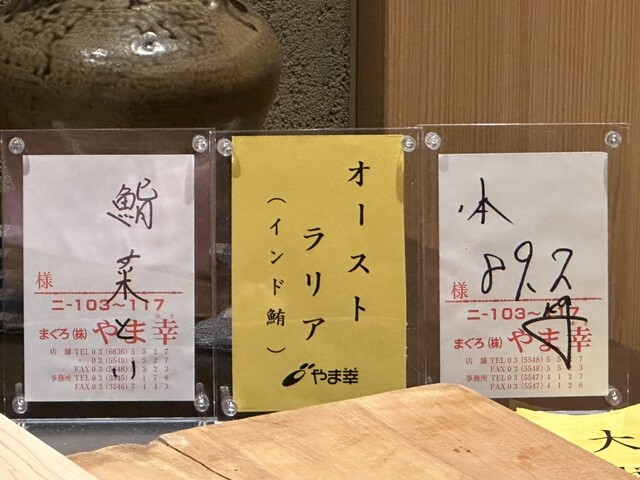 鮨
菜
と
り
様
ニ-103〜117
まぐろ(株) やま幸
店舗 TEL 03 (6636) 5527
〃 03 (5548) 5
FAX 03 (5548) 5
事務所 TEL 03 178
FAX 03 (3546) 7443
オースト
ラリア
(インド鮪)
やま幸
本
89.2
様
ニ-103〜 7
まぐろ(株) やま幸
店舗 TEL 03 (5548) 5 7
FAX 03 (5548) 5
事務所 TEL 03 (5547) 4127
FAX 03 (5547) 4126
大